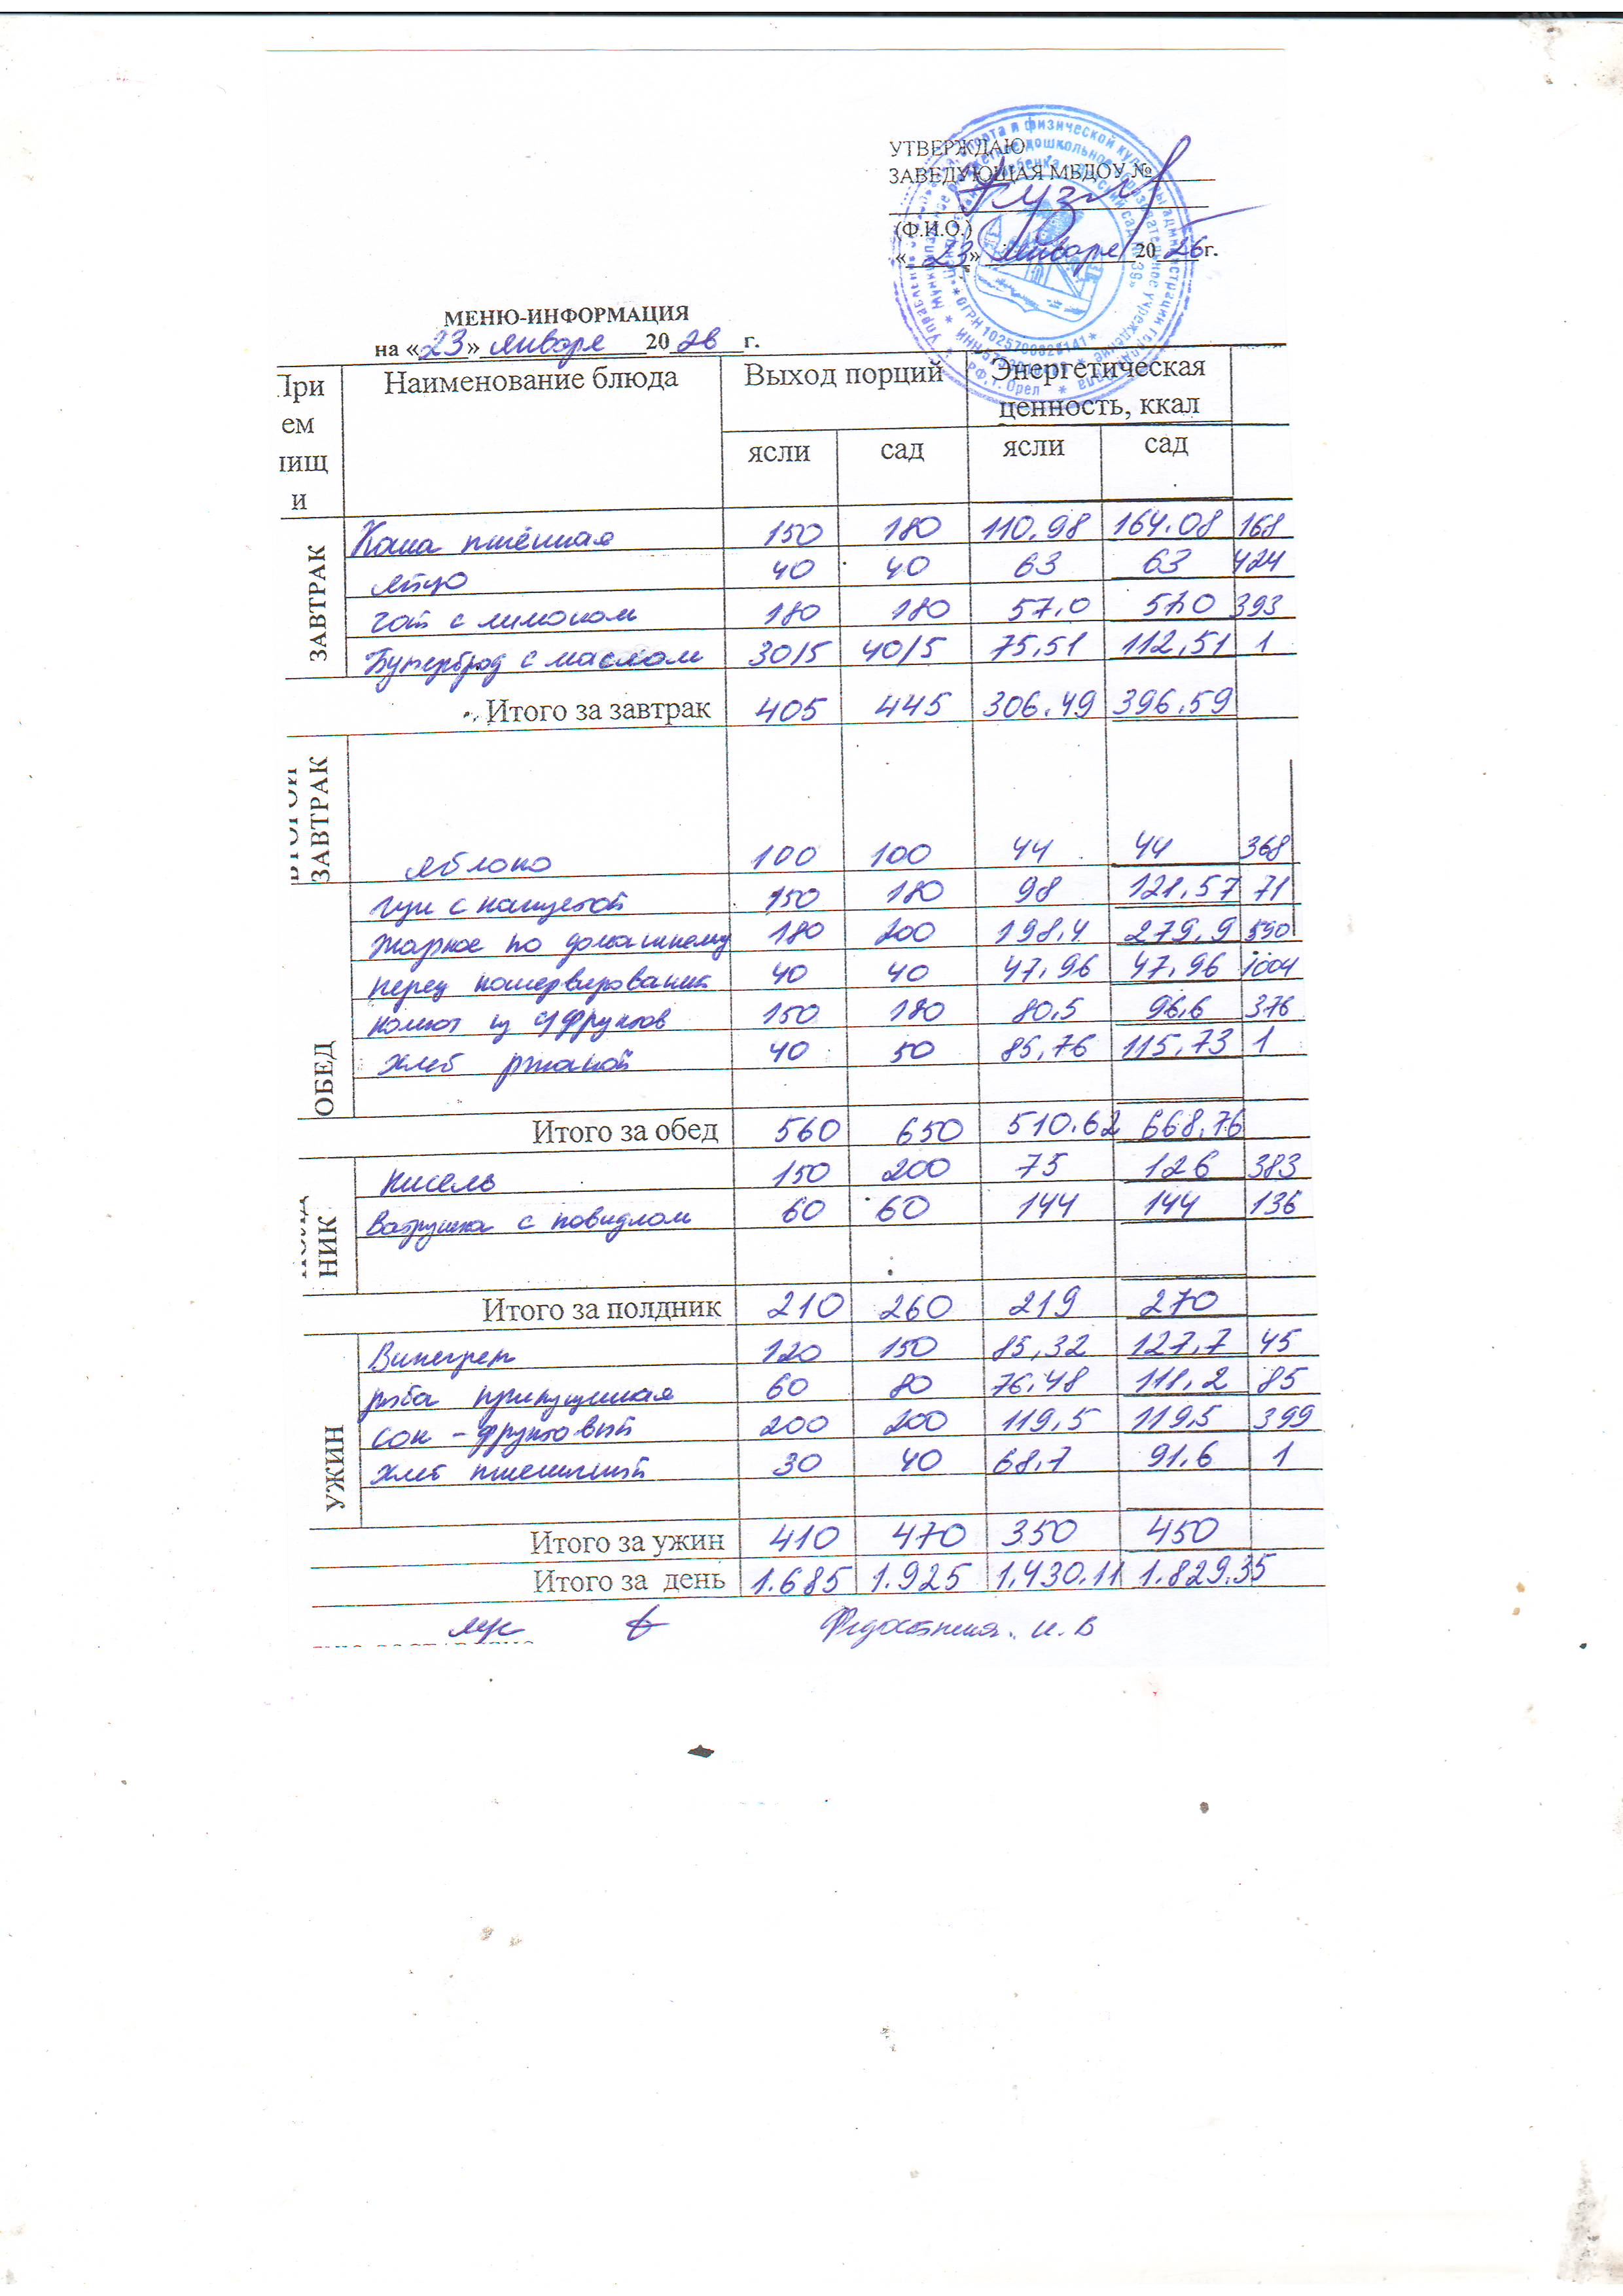 УТВЕРЖДАЮ
ЗАВЕДУЮЩАЯ МБДОУ №
(Ф.И.О.)
«23» января 2026г.
МЕНЮ-ИНФОРМАЦИЯ
на «23» января 2026 г.
При Наименование блюда Выход порций Энергетическая
ем ценность, ккал
пищ ясли сад ясли сад
и
ЗАВТРАК
Каша пшённая 150 180 110,98 164.08 168
яйцо 40 40 63 63 424
чай с лимоном 180 180 57,0 57,0 393
Бутерброд с маслом 30/5 40/5 75,51 112,51 1
Итого за завтрак 405 445 306.49 396,59
ЗАВТРАК
яблоко 100 100 44 44 368
ОБЕД
щи с капустой 150 180 98 121,57 71
жаркое по домашнему 180 200 198,4 279,9 590
перец консервирований 40 40 47,96 47,96 1004
150 180 80,5 96,6 376
хлеб ржаной 40 50 85,76 115,73 1
Итого за обед 560 650 510.62 668,76
НИК
кисель 150 200 75 126 383
Ватрушка с повидлом 60 60 144 144 136
Итого за полдник 210 260 219 270
УЖИН
Винегрет 120 150 85,32 127,7 45
рыба припущенная 60 80 76,48 111,2 85
сок - фруктовый 200 200 119,5 119,5 399
хлеб пшеничный 30 40 68,7 91,6 1
Итого за ужин 410 470 350 450
Итого за день 1.685 1.925 1.430.11 1.829.35
И. В